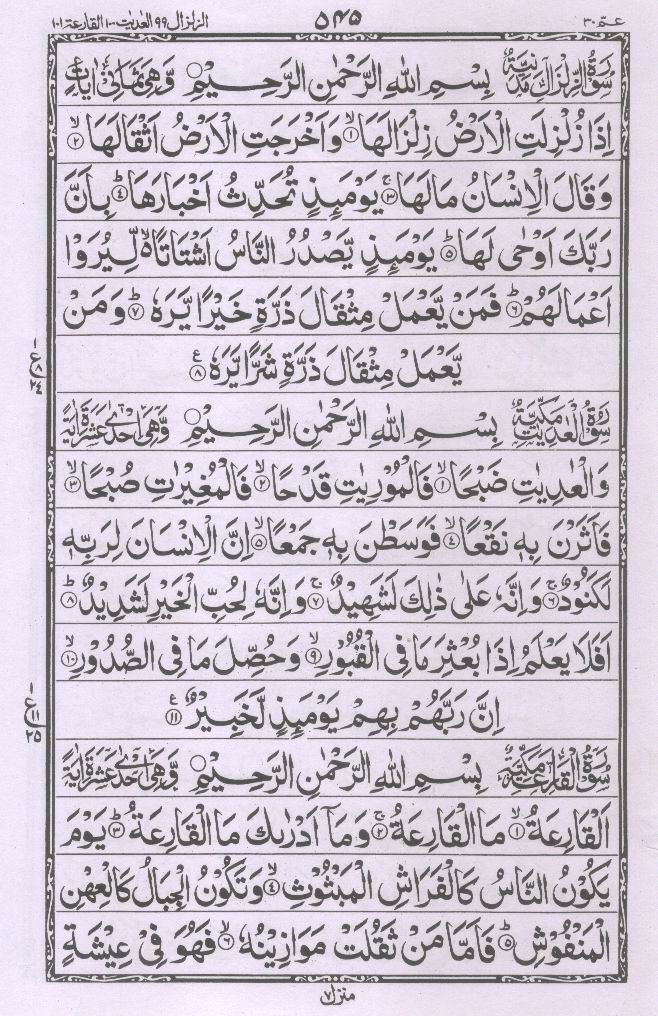 عـمّ ٣٠ ٥٤٥ الزلزال ٩٩ العديت ١٠٠ القارعة ١٠١
سُوْرَةُ الزِّلْزَالِ مَدَنِيَّةٌ بِسْمِ اللهِ الرَّحْمٰنِ الرَّحِيْمِ ○ وَّهِيَ ثَمَانِيْ اٰيَاتٍ
اِذَا زُلْزِلَتِ الْاَرْضُ زِلْزَالَهَا ۙ﴿١﴾ وَاَخْرَجَتِ الْاَرْضُ اَثْقَالَهَا ۙ﴿٢﴾
وَقَالَ الْاِنْسَانُ مَا لَهَا ۚ﴿٣﴾ يَوْمَئِذٍ تُحَدِّثُ اَخْبَارَهَا ؕ﴿٤﴾ بِاَنَّ
رَبَّكَ اَوْحٰى لَهَا ؕ﴿٥﴾ يَوْمَئِذٍ يَّصْدُرُ النَّاسُ اَشْتَاتًا ۬ۙ لِّيُرَوْا
اَعْمَالَهُمْ ؕ﴿٦﴾ فَمَنْ يَّعْمَلْ مِثْقَالَ ذَرَّةٍ خَيْرًا يَّرَهٗ ؕ﴿٧﴾ وَمَنْ
يَّعْمَلْ مِثْقَالَ ذَرَّةٍ شَرًّا يَّرَهٗ ﴿٨﴾ ع
ع ٨ ٢٤
سُوْرَةُ الْعٰدِيٰتِ مَكِّيَّةٌ بِسْمِ اللهِ الرَّحْمٰنِ الرَّحِيْمِ ○ وَّهِيَ اِحْدٰى عَشْرَةَ اٰيَةً
وَالْعٰدِيٰتِ ضَبْحًا ۙ﴿١﴾ فَالْمُوْرِيٰتِ قَدْحًا ۙ﴿٢﴾ فَالْمُغِيْرٰتِ صُبْحًا ۙ﴿٣﴾
فَاَثَرْنَ بِهٖ نَقْعًا ۙ﴿٤﴾ فَوَسَطْنَ بِهٖ جَمْعًا ۙ﴿٥﴾ اِنَّ الْاِنْسَانَ لِرَبِّهٖ
لَكَنُوْدٌ ۚ﴿٦﴾ وَاِنَّهٗ عَلٰى ذٰلِكَ لَشَهِيْدٌ ۚ﴿٧﴾ وَاِنَّهٗ لِحُبِّ الْخَيْرِ لَشَدِيْدٌ ؕ﴿٨﴾
اَفَلَا يَعْلَمُ اِذَا بُعْثِرَ مَا فِى الْقُبُوْرِ ۙ﴿٩﴾ وَحُصِّلَ مَا فِى الصُّدُوْرِ ۙ﴿١٠﴾
اِنَّ رَبَّهُمْ بِهِمْ يَوْمَئِذٍ لَّخَبِيْرٌ ﴿١١﴾ ع
ع ١١ ٢٥
سُوْرَةُ الْقَارِعَةِ مَكِّيَّةٌ بِسْمِ اللهِ الرَّحْمٰنِ الرَّحِيْمِ ○ وَّهِيَ اِحْدٰى عَشْرَةَ اٰيَةً
اَلْقَارِعَةُ ۙ﴿١﴾ مَا الْقَارِعَةُ ۚ﴿٢﴾ وَمَاۤ اَدْرٰىكَ مَا الْقَارِعَةُ ؕ﴿٣﴾ يَوْمَ
يَكُوْنُ النَّاسُ كَالْفَرَاشِ الْمَبْثُوْثِ ۙ﴿٤﴾ وَتَكُوْنُ الْجِبَالُ كَالْعِهْنِ
الْمَنْفُوْشِ ؕ﴿٥﴾ فَاَمَّا مَنْ ثَقُلَتْ مَوَازِيْنُهٗ ۙ﴿٦﴾ فَهُوَ فِيْ عِيْشَةٍ
منزل ٧